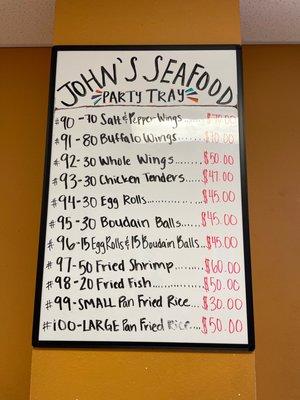 JOHN'S SEAFOOD
PARTY TRAY
#90-70 Salt & Pepper Wings $70.00
#91-80 Buffalo Wings $70.00
#92-30 Whole Wings....... $50.00
#93-30 Chicken Tenders....... $47.00
#94-30 Egg Rolls............... $45.00
#95-30 Boudain Balls....... $45.00
#96-15 Egg Rolls & 15 Boudain Balls... $45.00
#97-50 Fried Shrimp......... $60.00
#98-20 Fried Fish............. $50.00
#99-SMALL Pan Fried Rice... $30.00
#100-LARGE Pan Fried Rice... $50.00